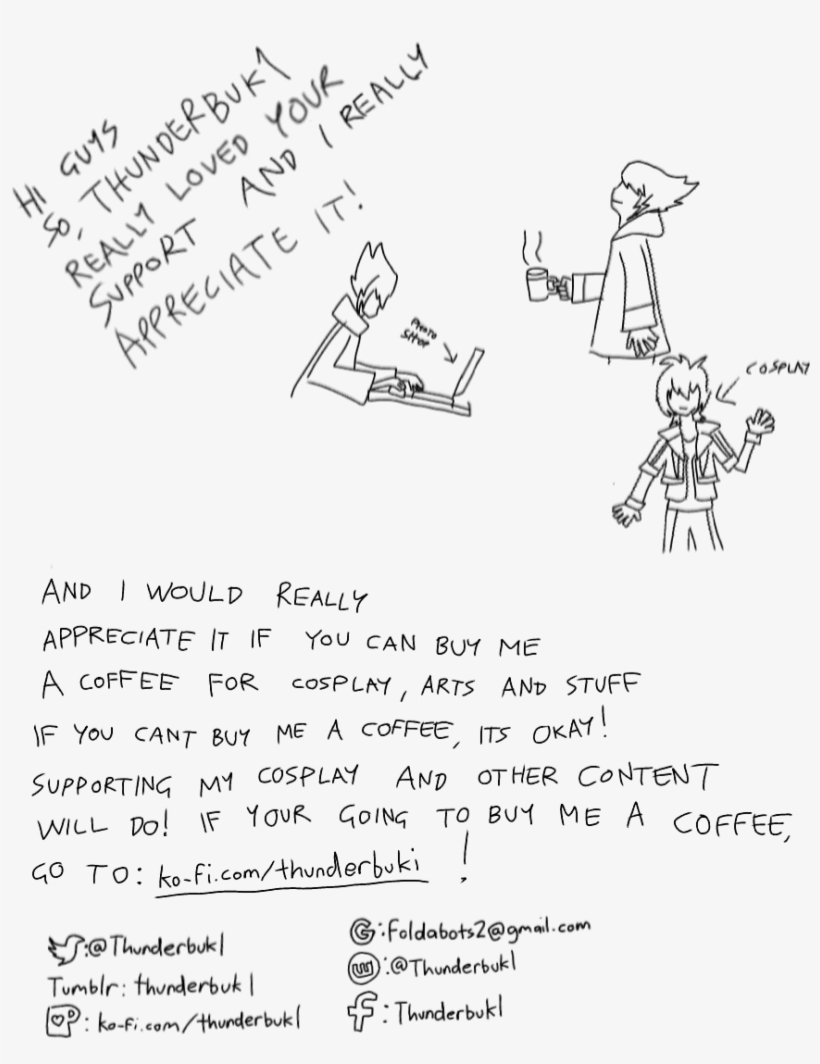 HI GUYS
SO, THUNDERBUK1
REALLY LOVED YOUR
SUPPORT AND I REALLY
APPRECIATE IT!
PHOTO
SHOP
COSPLAY
AND I WOULD REALLY
APPRECIATE IT IF YOU CAN BUY ME
A COFFEE FOR COSPLAY, ARTS AND STUFF
IF YOU CANT BUY ME A COFFEE, ITS OKAY!
SUPPORTING MY COSPLAY AND OTHER CONTENT
WILL DO! IF YOUR GOING TO BUY ME A COFFEE,
GO TO: ko-fi.com/thunderbuki !
:@Thunderbuk1
Tumblr: thunderbuk1
: ko-fi.com/thunderbuk1
G:Foldabots2@gmail.com
:@Thunderbuk1
f: Thunderbuk1